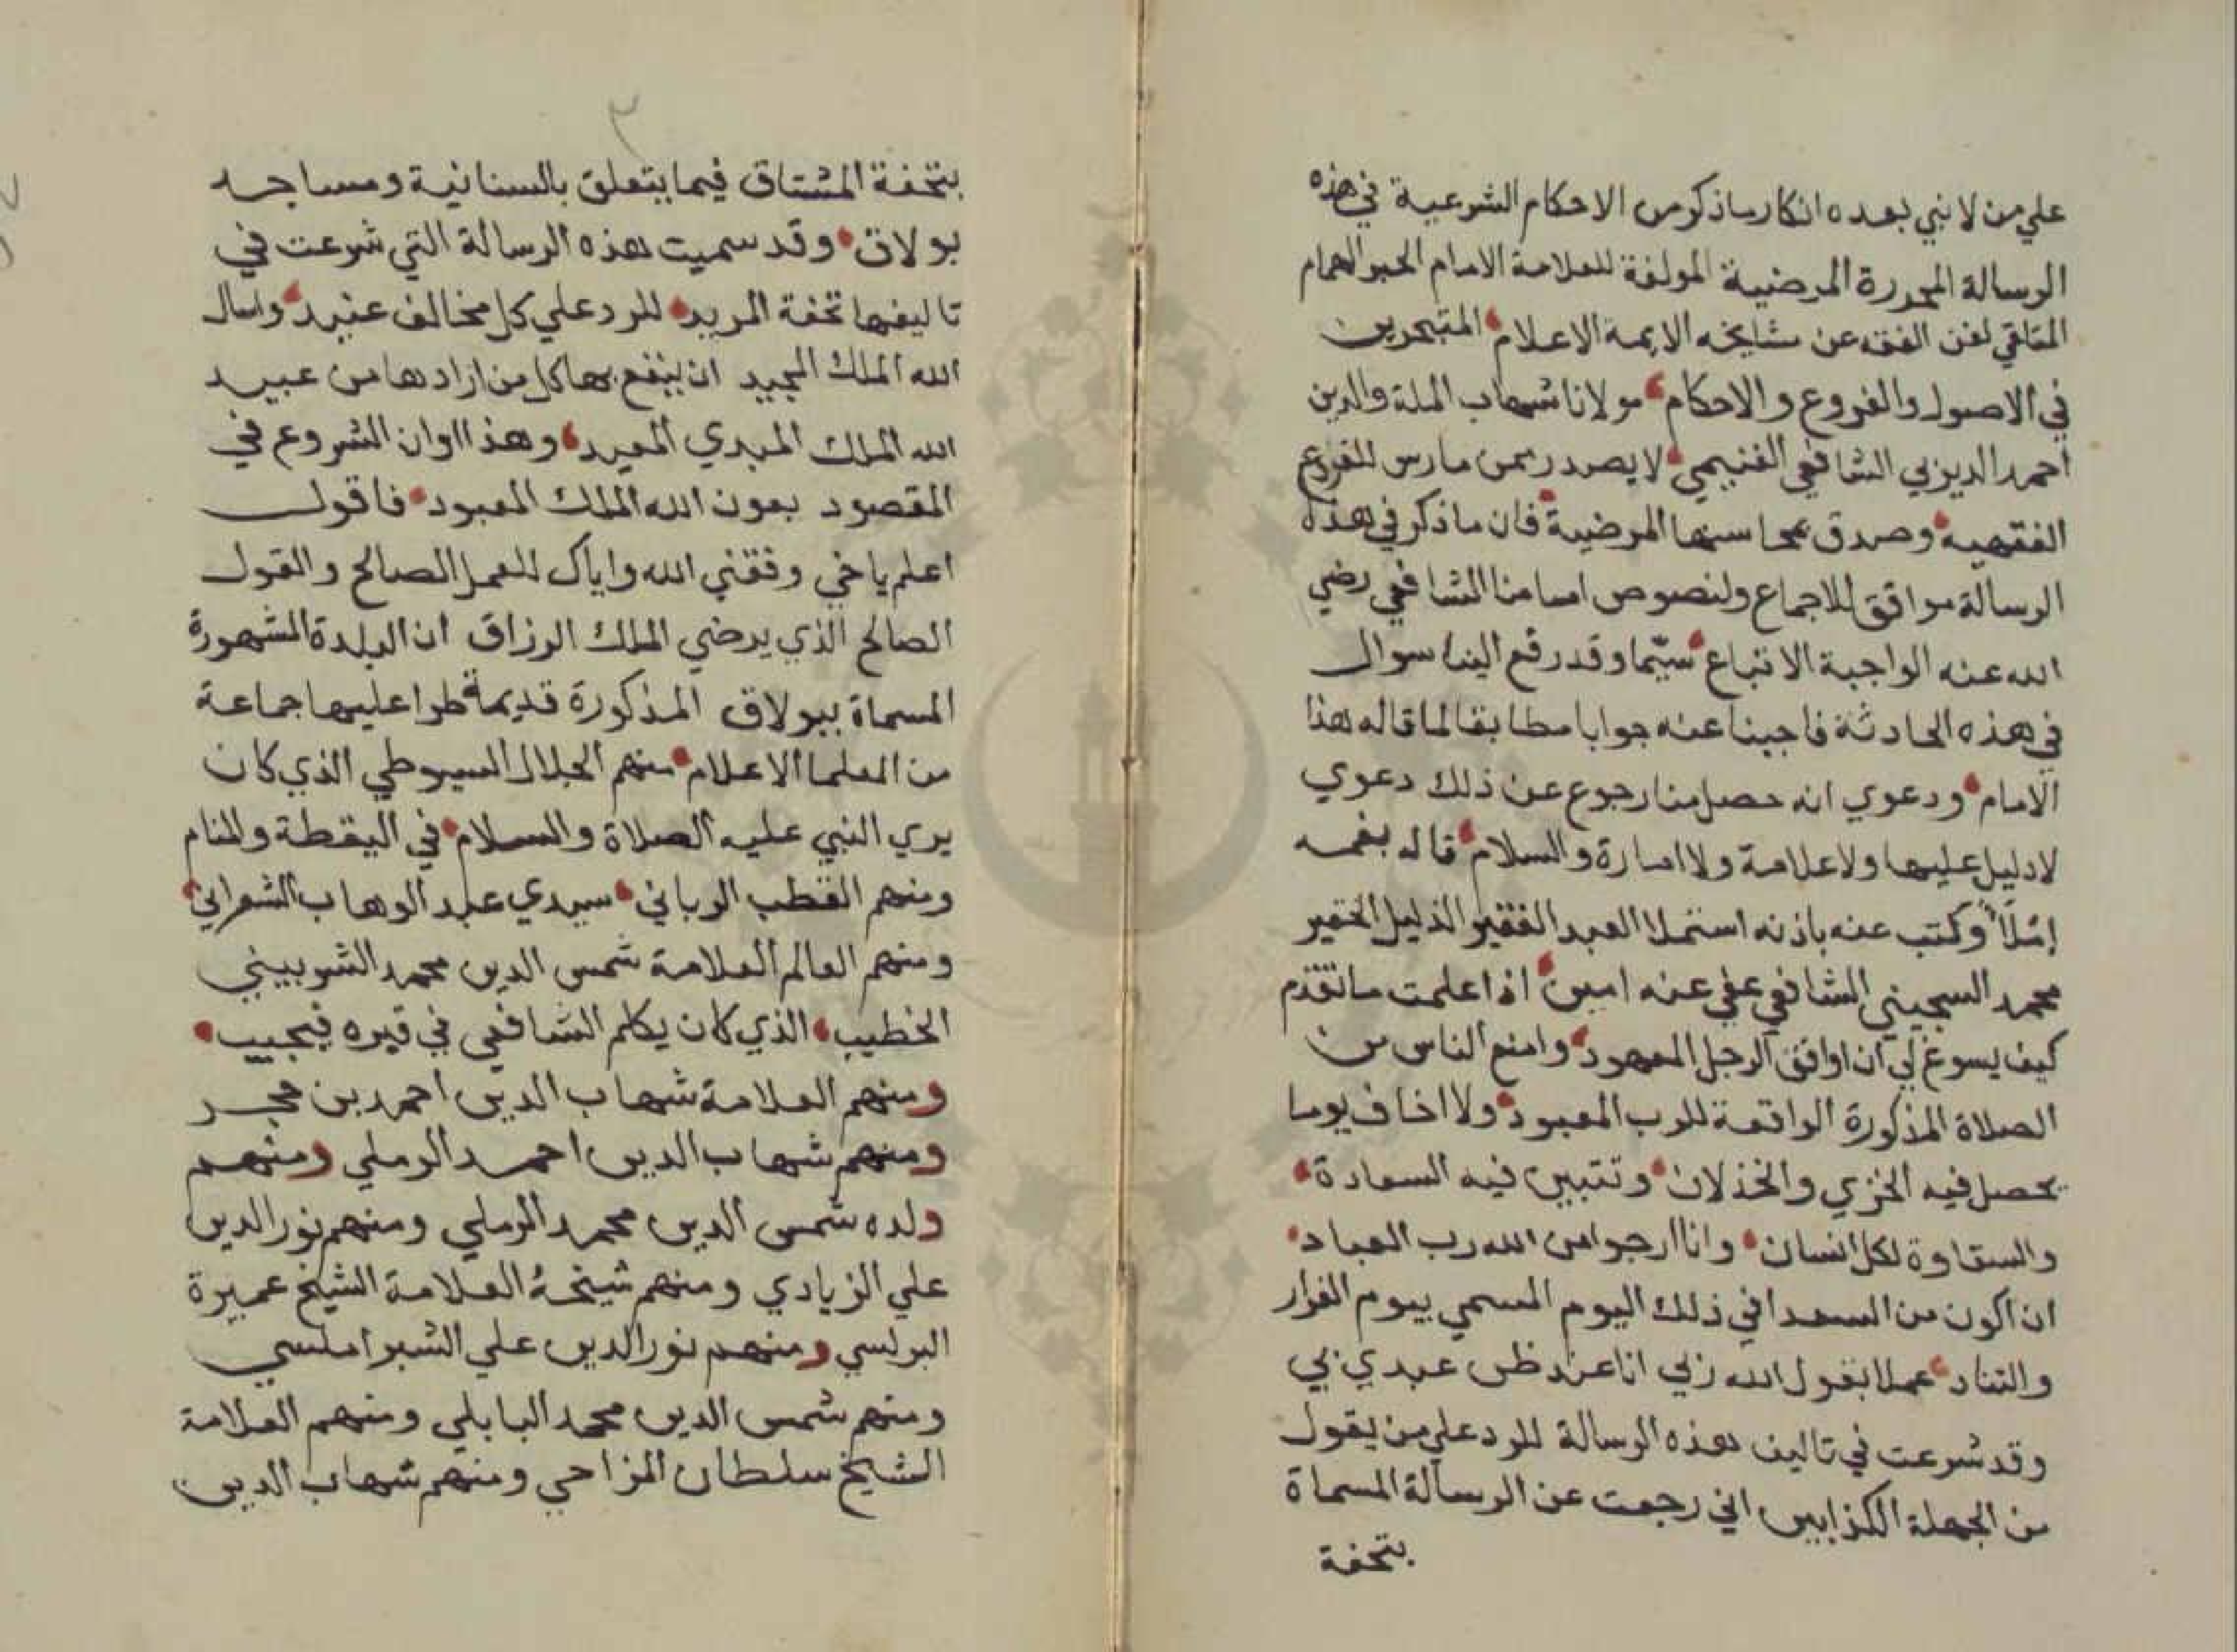 علي من لا نبي بعده انكار ما ذكر من الاحكام الشرعية في هذه
الرسالة المحررة المرضية المولفة للعلامة الامام الحبر الهمام
المتلقي لفن الفقه عن مشايخه الايمة الاعلام المتبحرين
في الاصول والفروع والاحكام مولانا شهاب الملة والدين
احمد الديربي الشافعي الغنيمي لا يصدر ممن مارس للفروع
الفقهية وصدق بمحاسنها المرضية فان ما ذكر في هذه
الرسالة موافق للاجماع ولنصوص امامنا الشافعي رضي
الله عنه الواجبة الاتباع سيّما وقد رفع الينا سوال
في هذه الحادثة فاجبنا عنه جوابا مطابقا لما قاله هذا
الامام ودعوي انه حصل منا رجوع عن ذلك دعوي
لا دليل عليها ولا علامة ولا امارة والسلام قاله بفمه
إملاً وكتب عنه باذنه استملا العبد الفقير الذليل الحقير
محمد السجيني الشافعي عفي عنه امين اذا علمت ما تقدم
كيف يسوغ لي ان اوافق الرجل المعهود وامنع الناس من
الصلاة المذكورة الواقعة للرب المعبود ولا اخاف يوما
يحصل فيه الخزي والخذلان وتتبين فيه السعادة
والشقاوة لكل انسان وانا ارجوا من الله رب العباد
ان اكون من السعدا في ذلك اليوم المسمي بيوم الفرار
والتناد عملا بقول الله ربي انا عند ظن عبدي بي
وقد شرعت في تاليف هذه الرسالة للرد علي من يقول
من الجهلة الكذابين اني رجعت عن الرسالة المسماة
بتحفة
٣
بتحفة المشتاق فيما يتعلق بالسنانية ومساجد
بولاق وقد سميت هذه الرسالة التي شرعت في
تاليفها تحفة المريد للرد علي كل مخالف عنيد واسال
الله الملك المجيد ان ينفع بها كل من ارادها من عبيد
الله الملك المبدي المعيد وهذا اوان الشروع في
المقصود بعون الله الملك المعبود فاقول
اعلم يا اخي وفقني الله واياك للعمل الصالح والقول
الصالح الذي يرضي الملك الرزاق ان البلدة المشهورة
المسماة ببولاق المذكورة قديمة طرا عليها جماعة
من العلما الاعلام منهم الجلال السيوطي الذي كان
يري النبي عليه الصلاة والسلام في اليقظة والمنام
ومنهم القطب الرباني سيدي عبد الوهاب الشعراني
ومنهم العالم العلامة شمس الدين محمد الشربيني
الخطيب الذي كان يكلم الشافعي في قبره فيجيب
ومنهم العلامة شهاب الدين احمد بن حجر
ومنهم شهاب الدين احمد الرملي ومنهم
ولده شمس الدين محمد الرملي ومنهم نور الدين
علي الزيادي ومنهم شيخه العلامة الشيخ عميرة
البرلسي ومنهم نور الدين علي الشبراملسي
ومنهم شمس الدين محمد البابلي ومنهم العلامة
الشيخ سلطان المزاحي ومنهم شهاب الدين